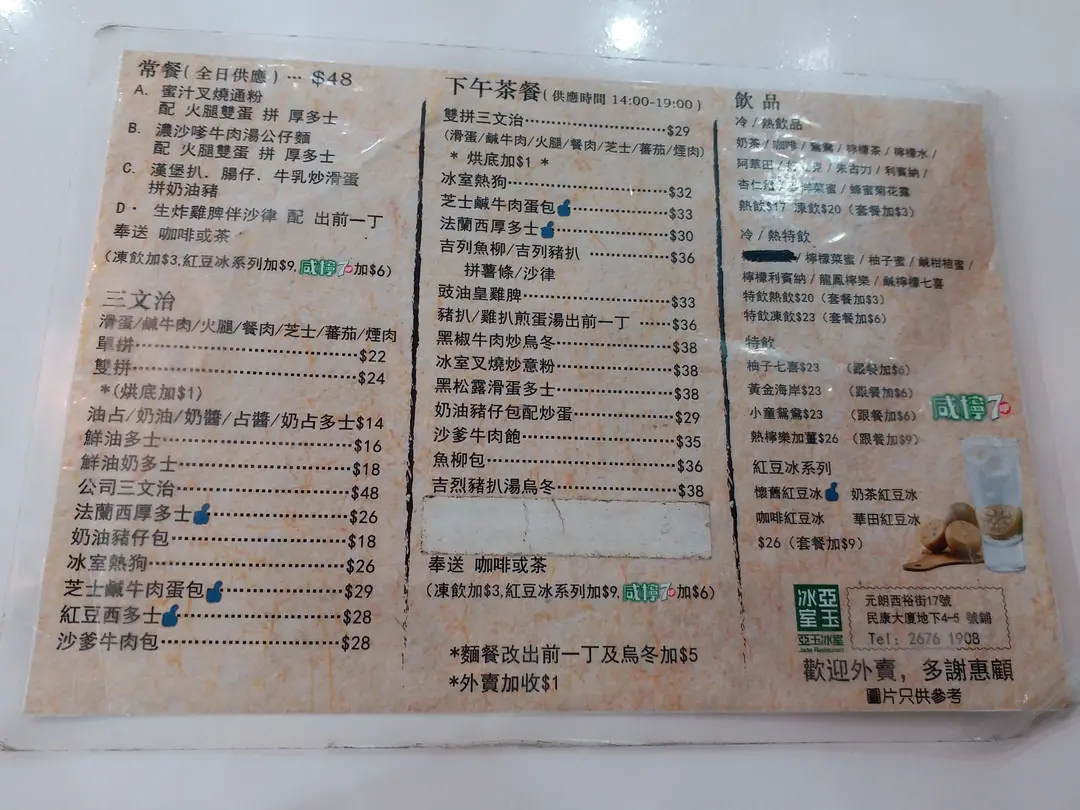 常餐(全日供應)… $48
A. 蜜汁叉燒通粉
配 火腿雙蛋 拼 厚多士
B. 濃沙嗲牛肉湯公仔麵
配 火腿雙蛋 拼 厚多士
C. 漢堡扒．腸仔．牛乳炒滑蛋
拼奶油豬
D． 生炸雞脾伴沙律 配 出前一丁
奉送 咖啡或茶
(凍飲加$3,紅豆冰系列加$9,咸檸7加$6)
三文治
滑蛋/鹹牛肉/火腿/餐肉/芝士/蕃茄/煙肉
單拼 $22
雙拼 $24
*(烘底加$1)
油占/奶油/奶醬/占醬/奶占多士$14
鮮油多士 $16
鮮油奶多士 $18
公司三文治 $48
法蘭西厚多士 $26
奶油豬仔包 $18
冰室熱狗 $26
芝士鹹牛肉蛋包 $29
紅豆西多士 $28
沙爹牛肉包 $28
下午茶餐(供應時間 14:00-19:00)
雙拼三文治 $29
(滑蛋/鹹牛肉/火腿/餐肉/芝士/蕃茄/煙肉)
* 烘底加$1 *
冰室熱狗 $32
芝士鹹牛肉蛋包 $33
法蘭西厚多士 $30
吉列魚柳/吉列豬扒 $36
拼薯條/沙律
豉油皇雞脾 $33
豬扒/雞扒煎蛋湯出前一丁 $36
黑椒牛肉炒烏冬 $38
冰室叉燒炒意粉 $38
黑松露滑蛋多士 $38
奶油豬仔包配炒蛋 $29
沙爹牛肉飽 $35
魚柳包 $36
吉烈豬扒湯烏冬 $38
奉送 咖啡或茶
(凍飲加$3,紅豆冰系列加$9,咸檸7加$6)
*麵餐改出前一丁及烏冬加$5
*外賣加收$1
飲品
冷/熱飲品
奶茶/咖啡/鴛鴦/檸檬茶/檸檬水/
阿華田/朱古力/利賓納/
杏仁/菜蜜/蜂蜜菊花露
熱飲$17 凍飲$20 (套餐加$3)
冷/熱特飲
/檸檬菜蜜/柚子蜜/鹹柑桔蜜/
檸檬利賓納/龍鳳檸樂/鹹檸檬七喜
特飲熱飲$20 (套餐加$3)
特飲凍飲$23 (套餐加$6)
特飲
柚子七喜$23 (跟餐加$6)
黃金海岸$23 (跟餐加$6)
小童鴛鴦$23 (跟餐加$6)
咸檸7
熱檸樂加薑$26 (跟餐加$9)
紅豆冰系列
懷舊紅豆冰 奶茶紅豆冰
咖啡紅豆冰 華田紅豆冰
$26 (套餐加$9)
亞玉冰室
亞玉冰室
Jade Restaurant
元朗西裕街17號
民康大廈地下4-5 號鋪
Tel: 2676 1908
歡迎外賣，多謝惠顧
圖片只供參考